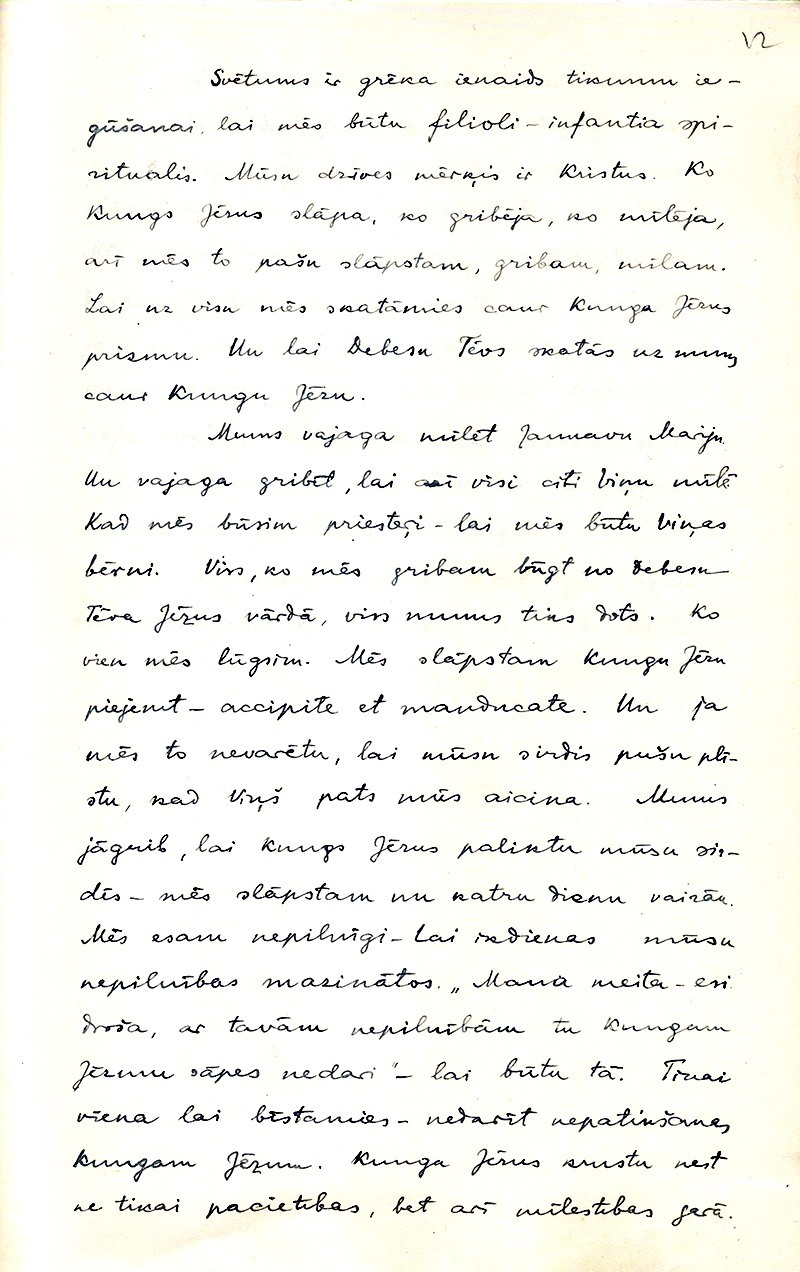 12
Svētums ir grēka ienaids tikumu ie-
gūšanai, lai mēs būtu filioli - infantia spi-
ritualis. Mūsu dzīves mērķis ir Kristus. Ko
Kungs Jēzus slāpa, ko gribēja, ko mīlēja,
arī mēs to pašu slāpstam, gribam, mīlam.
Lai uz visu mēs skatāmies caur Kunga Jēzus
prizmu. Un lai Debesu Tēvs skatās uz mums
caur Kungu Jēzu.
Mums vajaga mīlēt Jaunavu Mariju.
Un vajaga gribēt, lai arī visi citi Viņu mīlē
Kad mēs būsim priesteŗi - lai mēs būtu Viņas
bērni. Viss, ko mēs gribam lūgt no Debesu
Tēva Jēzus vārdā, viss mums tiks dots. Ko
vien mēs lūgsim. Mēs slāpstam Kungu Jēzu
pieņemt - accipite et manducate. Un ja
mēs to nevarētu, lai mūsu sirdis pušu plī-
stu, kad Viņš pats mūs aicina. Mums
jāgrib, lai Kungs Jēzus paliktu mūsu sir-
dīs - mēs slāpstam nu katru dienu vairāk.
Mēs esam nepilnīgi - Lai ikdienas mūsu
nepilnības mazinātos. „Mana meita - esi
droša, ar tavām nepilnībām tu Kungam
Jēzum sāpes nedari" - lai būtu tā. Tikai
viena lai bīstamies - nedarīt nepatikšanas
Kungam Jēzum. Kunga Jēzus krustu nest
ne tikai pacietības, bet arī mīlestības garā.